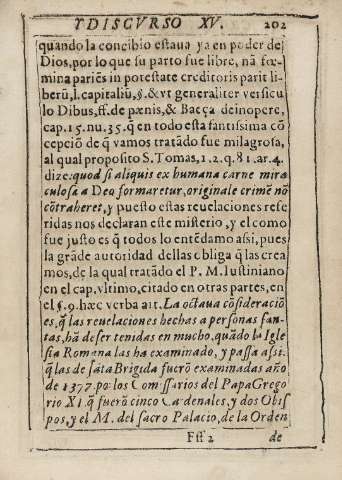 Y DISCVRSO XV. 202
quando la concibio estaua ya en poder de
Dios, por lo que su parto fue libre, nã fœ-
mina pariẽs in potestate creditoris parit li-
berũ, l. capitaliũ, §. & vt generaliter versicu
lo Dibus, ff. de pænis, & Baeça de inope,
cap. 15. nu. 35. q̃ en todo esta santissima cõ
cepciõ de q̃ vamos tratãdo fue milagrosa,
al qual proposito S. Tomas, 1. 2. q. 81. ar. 4.
dize: quod si aliquis ex humana carne mira
culosa à Deo formaretur, originale crimẽ nõ
cõtraheret, y puesto estas reuelaciones refe
ridas nos declaran este misterio, y el como
fue justo es q̃ todos lo entẽdamo assi, pues
la grãde autoridad dellas obliga q̃ las crea
mos, de la qual tratãdo el P. M. Iustiniano
en el cap. vltimo, citado en otras partes, en
el §. 9. hæc verba ait. La octaua cõsideraciõ
es, q̃ las reuelaciones hechas a personas san-
tas, hã de ser tenidas en mucho, quãdo la Igle
sia Romana las ha examinado, y passa assi.
q̃ las de sãta Brigida fuerõ examinadas año
de 1377. por los Comissarios del Papa Grego
rio XI. q̃ fuerõ cinco Cardenales, y dos Obis
pos, y el M. del sacro Palacio, de la Orden
Fff 2 de